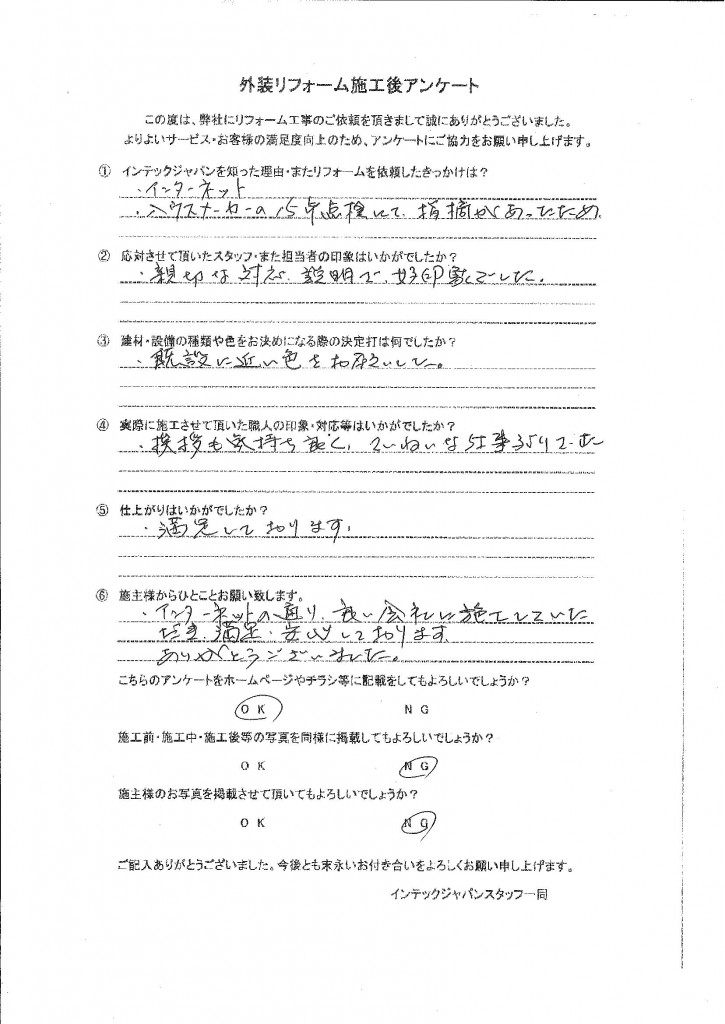 外装リフォーム施工後アンケート
この度は、弊社にリフォーム工事のご依頼を頂きまして誠にありがとうございました。
よりよいサービス・お客様の満足度向上のため、アンケートにご協力をお願い申し上げます。
① インテックジャパンを知った理由・またリフォームを依頼したきっかけは？
・インターネット
・ハウスメーカーの15年点検にて、指摘があったため
② 応対させて頂いたスタッフ・また担当者の印象はいかがでしたか？
・親切な対応、説明で、好印象でした。
③ 建材・設備の種類や色をお決めになる際の決定打は何でしたか？
・既設に近い色をお願いした。
④ 実際に施工させて頂いた職人の印象・対応等はいかがでしたか？
・挨拶も気持ち良く、ていねいな仕事ぶりでした
⑤ 仕上がりはいかがでしたか？
・満足しております。
⑥ 施主様からひとことお願い致します。
・インターネットの通り、良い会社に施工していた
だき、満足・安心しております。
ありがとうございました。
こちらのアンケートをホームページやチラシ等に記載をしてもよろしいでしょうか？
ＯＫ ＮＧ
施工前・施工中・施工後等の写真を同様に掲載してもよろしいでしょうか？
ＯＫ ＮＧ
施主様のお写真を掲載させて頂いてもよろしいでしょうか？
ＯＫ ＮＧ
ご記入ありがとうございました。今後とも末永いお付き合いをよろしくお願い申し上げます。
インテックジャパンスタッフ一同